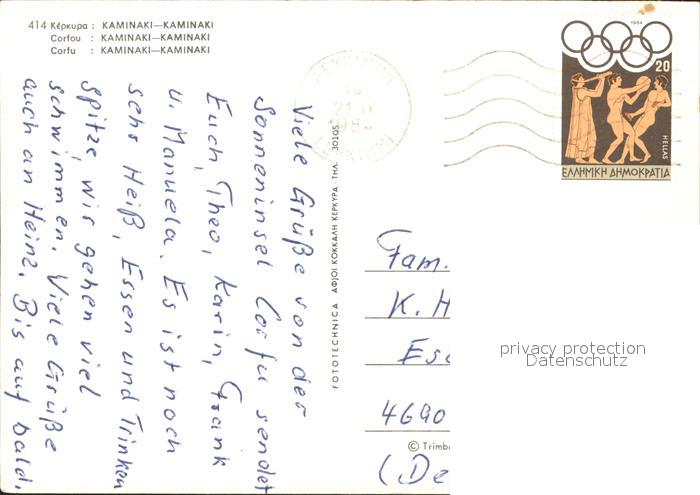 414 Κέρκυρα : ΚΑΜΙΝΑΚΙ—ΚΑΜΙΝΑΚΙ
Corfou : KAMINAKI—KAMINAKI
Corfu : KAMINAKI—KAMINAKI
1984
20
HELLAS
ΕΛΛΗΝΙΚΗ ΔΗΜΟΚΡΑΤΙΑ
ΛΕΥΚΙΜΜΗ
14
Viele Grüße von der
Sonneninsel Corfu sendet
Euch, Theo, Karin, Frank
u. Manuela. Es ist noch
sehr Heiß, Essen und Trinken
Spitze, wir gehen viel
schwimmen. Viele Grüße
auch an Heinz. Bis auf bald.
FOTOTECHNICA ΑΦ)ΟΙ ΚΟΚΚΑΛΗ ΚΕΡΚΥΡΑ - ΤΗΛ. 30105
Fam.
K. H
Esc
4690
© Trimb
(De
privacy protection
Datenschutz